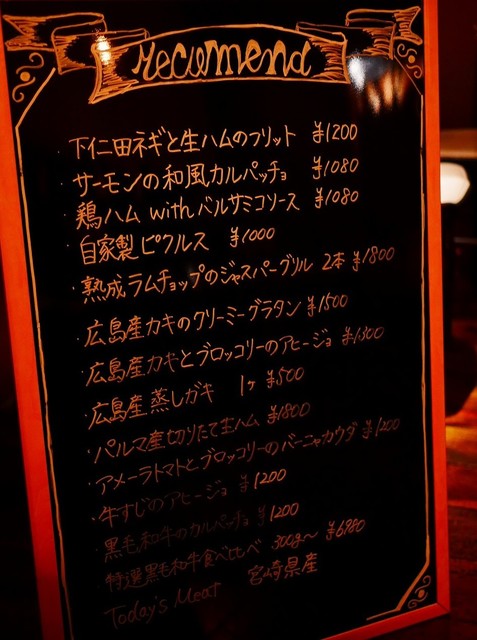 Recummend
・下仁田ネギと生ハムのフリット ¥1200
・サーモンの和風カルパッチョ ¥1080
・鶏ハム withバルサミコソース ¥1080
・自家製ピクルス ¥1000
・熟成ラムチョップのジャスパーグリル 2本 ¥1800
・広島産カキのクリーミーグラタン ¥1500
・広島産カキとブロッコリーのアヒージョ ¥1300
・広島産蒸しガキ 1ヶ ¥500
・パルマ産切りたて生ハム ¥1800
・アメーラトマトとブロッコリーのバーニャカウダ ¥1200
・牛すじのアヒージョ ¥1200
・黒毛和牛のカルパッチョ ¥1200
・特選黒毛和牛食べ比べ 300g〜 ¥6980
Today's Meat 宮崎県産